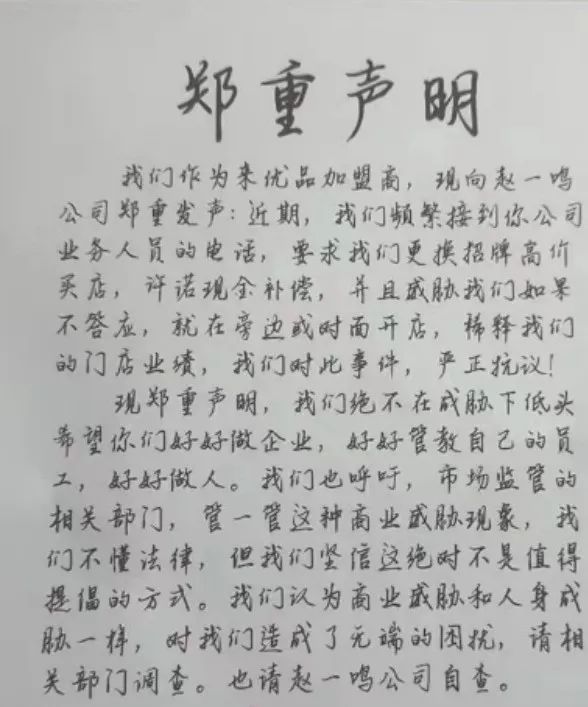 郑重声明
我们作为来优品加盟商，现向赵一鸣
公司郑重发声：近期，我们频繁接到你公司
业务人员的电话，要求我们更换招牌高价
买店，许诺现金补偿，并且威胁我们如果
不答应，就在旁边或对面开店，稀释我们
的门店业绩，我们对此事件，严正抗议！
现郑重声明，我们绝不在威胁下低头
希望你们好好做企业，好好管教自己的员
工，好好做人。我们也呼吁，市场监管的
相关部门，管一管这种商业威胁现象，我
们不懂法律，但我们坚信这绝对不是值得
提倡的方式。我们认为商业威胁和人身威
胁一样，对我们造成了无端的困扰，请相
关部门调查。也请赵一鸣公司自查。